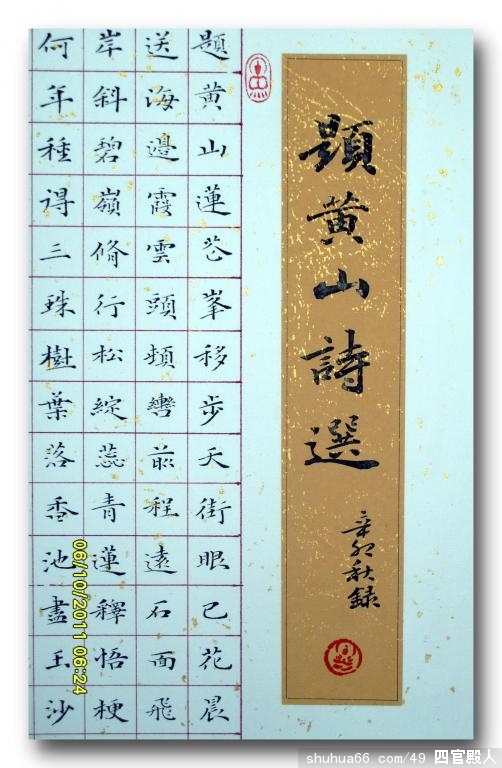 題黄山詩選
辛卯秋録
題黄山蓮花峯移步天街眼已花晨
送海邊霞雲頭頻彎前程遠石面飛
岸斜碧嶺脩行松綻蕊青蓮釋悟梗
何年種得三珠樹葉落香池盡玉沙
06/10/2011 06:24
shuhua66.com/49 四官殿人